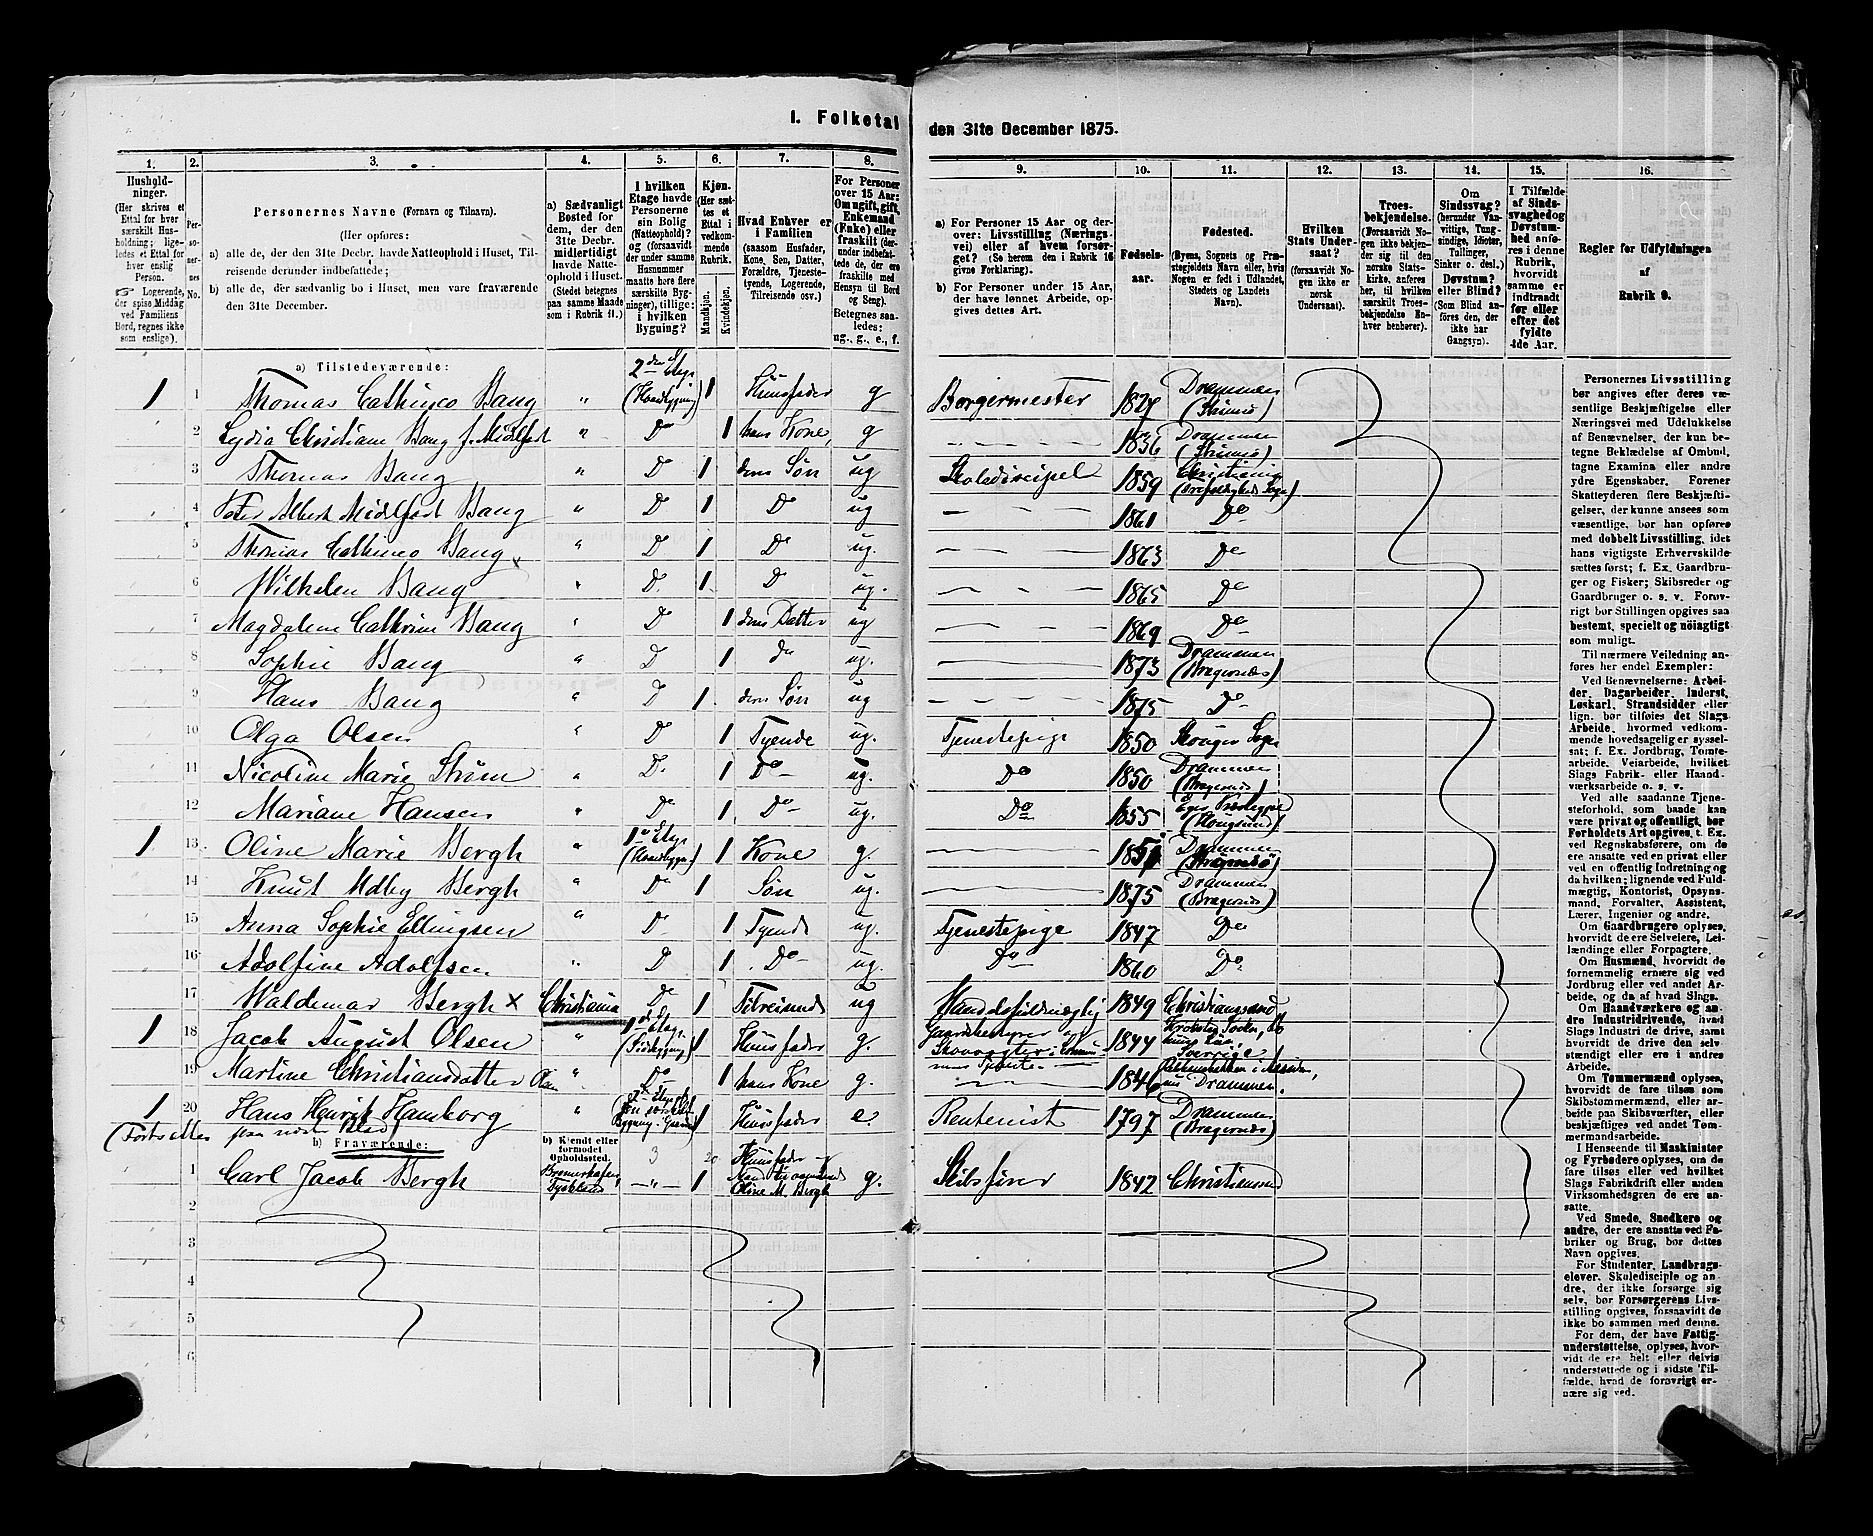 I. Folketal den 31te December 1875.
1. 2. 3. 4. 5. 6. 7. 8. 9. 10. 11. 12. 13. 14. 15. 16.
Husholdninger.
(Her skrives et Ettal for hver særskilt Husholdning; ligeledes et Ettal for hver enslig Person.
☞ Logerende, der spise Middag ved Familiens Bord, regnes ikke som enslige).
Personernes No.
Personernes Navne (Fornavn og Tilnavn).
(Her opføres:
a) alle de, der den 31te Decbr. havde Natteophold i Huset, Tilreisende derunder indbefattede;
b) alle de, der sædvanlig bo i Huset, men vare fraværende den 31te December.
a) Sædvanligt Bosted for dem, der den 31te Decbr. midlertidigt havde Natteophold i Huset. (Stedet betegnes paa samme Maade som i Rubrik 11.)
I hvilken Etage havde Personerne sin Bolig (Natteophold)? og (forsaavidt der under samme Husnummer maatte høre flere særskilte Bygninger), tillige: i hvilken Bygning?
Kjøn. (Her sættes et Ettal i vedkommende Rubrik.
Mandkjøn. Kvindekjøn.
Hvad Enhver er i Familien
(saasom Husfader, Kone, Søn, Datter, Forældre, Tjenestetyende, Logerende, Tilreisende osv.)
For Personer over 15 Aar: Om ugift, gift, Enkemand (Enke) eller fraskilt (derunder indbefattede de, der ere fraskilte med Hensyn til Bord og Seng). Betegnes saaledes: ug., g., e., f.
a) For Personer 15 Aar og derover: Livsstilling (Næringsvei) eller af hvem forsørget? (Se herom den i Rubrik 16 givne Forklaring).
b) For Personer under 15 Aar, der have lønnet Arbeide, opgives dettes Art.
Fødselsaar.
Fødested.
(Byens, Sognets og Præstegjeldets Navn eller, hvis Nogen er født i Udlandet, Stedets og Landets Navn).
Hvilken Stats Undersaat?
(forsaavidt Nogen ikke er norsk Undersaat).
Troesbekjendelse.
(Forsaavidt Nogen ikke bekjender sig til den norske Statskirke, anføres her, til hvilken særskilt Troesbekjendelse Enhver henhører).
Om Sindssvag? (herunder Vanvittige, Tungsindige, Idioter, Tullinger, Sinker o. desl.) Døvstum? eller Blind? (Som Blind anføres den, der ikke har Gangsyn).
I Tilfælde af Sindssvaghed og Døvstumhed anføres i denne Rubrik, hvorvidt samme er indtraadt før eller efter det fyldte 4de Aar.
Regler for Udfyldningen af Rubrik 9.
a) Tilstedeværende:
1 1 Thomas Cathinco Bang " 2den Etage (Hovedbygning) 1 Huusfader g Borgermester 1827 Drammen (Strømsø)
2 Lydia Christiane Bang f. Midlfart " Do 1 hans Kone, g 1836 Drammen (Strømsø)
3 Thomas Bang " D 1 deres Søn ug Skoledisicpel 1859 Christiania (Trefoldigheds Sogn)
4 Peter Albert Midlfart Bang " D 1 D ug 1861 Do
5 Thomas Cathinco Bang " D 1 Do ug. 1863 Do
6 Wilhelm Bang " D. 1 D ug. 1865 Do
7 Magdalene Cathrine Bang " D 1 deres Datter ug 1869 Do
8 Sophie Bang " D 1 do ug. 1873 Drammen (Bragernes)
9 Hans Bang " D 1. deres Søn ug 1875 Do
10 Olga Olsen " D 1 Tyende ug. Tjenestepige 1850 Skouger Sogn
11 Nicoline Marie Strøm " D. 1 Do ug. Do 1850 Drammen (Bragernes)
12 Mariane Hansen " Do 1. Do ug. Do 1855 Eger Præstegjeld (Hougsund)
1 13 Oline Marie Bergh " 1e Etage (Hovedbygn.) 1 Kone g. Drammen
14 Knut Udby Bergh " Do 1 Søn ug. 1875 Drammen (Bragernes)
15 Anna Sophie Ellingsen " D 1 Tyende ug. Tjenestepige 1847 Do
16 Adolfine Adolfsen " D 1 Do ug. Do 1860 Do
17 Waldemar Bergh x Christiania Do 1 Tilreisende ug Handelsfuldmægtig 1849 Christianssand
1 18 Jacob August Olsen " 1e Etage (Sidebygning) 1 Huusfader g. 1844 Sverrige
19 Martine Christiansdatter " Do 1 hans Kone g. 1846 Drammen.
1 20 Hans Henrik Hamborg " 1 Huusfader e. Rentenist 1797 Drammen (Bragernes)
(Fortsættes paa næste Blad)
b) Fraværende:
b) Kjendt eller formodet Opholdssted. 3 20
1 Carl Jacob Bergh Bremerhafen, Tydskland " 1 Huusfader Oline M. Bergh g. Skibsfører 1842 Christianssand
2
3
4
5
6
Personernes Livsstilling bør angives efter deres væsentlige Beskjæftigelse eller Næringsvei med Udelukkelse af Benævnelser, der kun betegne Beklædelse af Ombud, tagne Examina eller andre ydre Egenskaber. Forener Skatteyderen flere Beskjæftigelser, der kunne ansees som væsentlige, bør han opføres med dobbelt Livsstilling, idet hans vigtigste Erhvervskilde sættes først; f. Ex. Gaardbruger og Fisker; Skibsreder og Gaardbruger o. s. v. Forøvrigt bør Stillingen opgives saa bestemt, specielt og nøiagtigt som muligt.
Til nærmere Veiledning anføres her endel Exempler:
Ved Benævnelserne: Arbeider, Dagarbeider, Inderst, Løskarl, Strandsidder eller lign. bør tilføies det Slags Arbeide, hvormed vedkommende hovedsagelig er sysselsat; f. Ex. Jordbrug, Tomtearbeide, Veiarbeide, hvilket Slags Fabrik- eller Haandværksarbeide o. s. v.
Ved alle saadanne Tjenesteforhold, som baade kan være privat og offentligt, bør Forholdets Art opgives, t. Ex. ved Regnskabsførere, om de ere ansatte ved en privat eller ved en offentlig Indretning og da hvilken; lignende ved Fuldmægtig, Kontorist, Opsynsmand, Forvalter, Assistent, Lærer, Ingeniør og andre.
Om Gaardbrugere oplyses, hvorvidt de ere Selveiere, Leilændinge eller Forpagtere
Om Husmænd, hvorvidt de fornemmelig ernære sig ved Jordbrug eller ved andet Arbeide, og da af hvad Slags.
Om Haandværkere og andre Industridrivende, hvad Slags Industri de drive, samt hvorvidt de drive den selvstændigt eller ere i andres Arbeide.
Om Tømmermænd oplyses, hvorvidt de fare tilsøs som Skibstømmermænd, eller arbeide paa Skibsværfter, eller beskjæftiges ved andet Tømmermandsarbeide.
I Henseende til Maskinister og Fyrbødere oplyses, om de fare tilsøs eller ved hvilket Slags Fabrikdrift eller anden Virksomhedsgren de ere ansatte.
Ved Smede, Snedkere og andre, der ere ansatte ved Fabriker og Brug, bør dettes Navn opgives.
For Studenter, Landbrugselever, Skoledisciple og andre, der ikke forsørge sig selv, bør Forsørgerens Livsstilling opgives, forsaavidt de ikke bo sammen med denne.
For dem, der have Fattigunderstøttelse, oplyses, hvorvidt de ere helt eller delvis understøttede og i sidste Tilfælde, hvad de forøvrigt ernære sig ved.